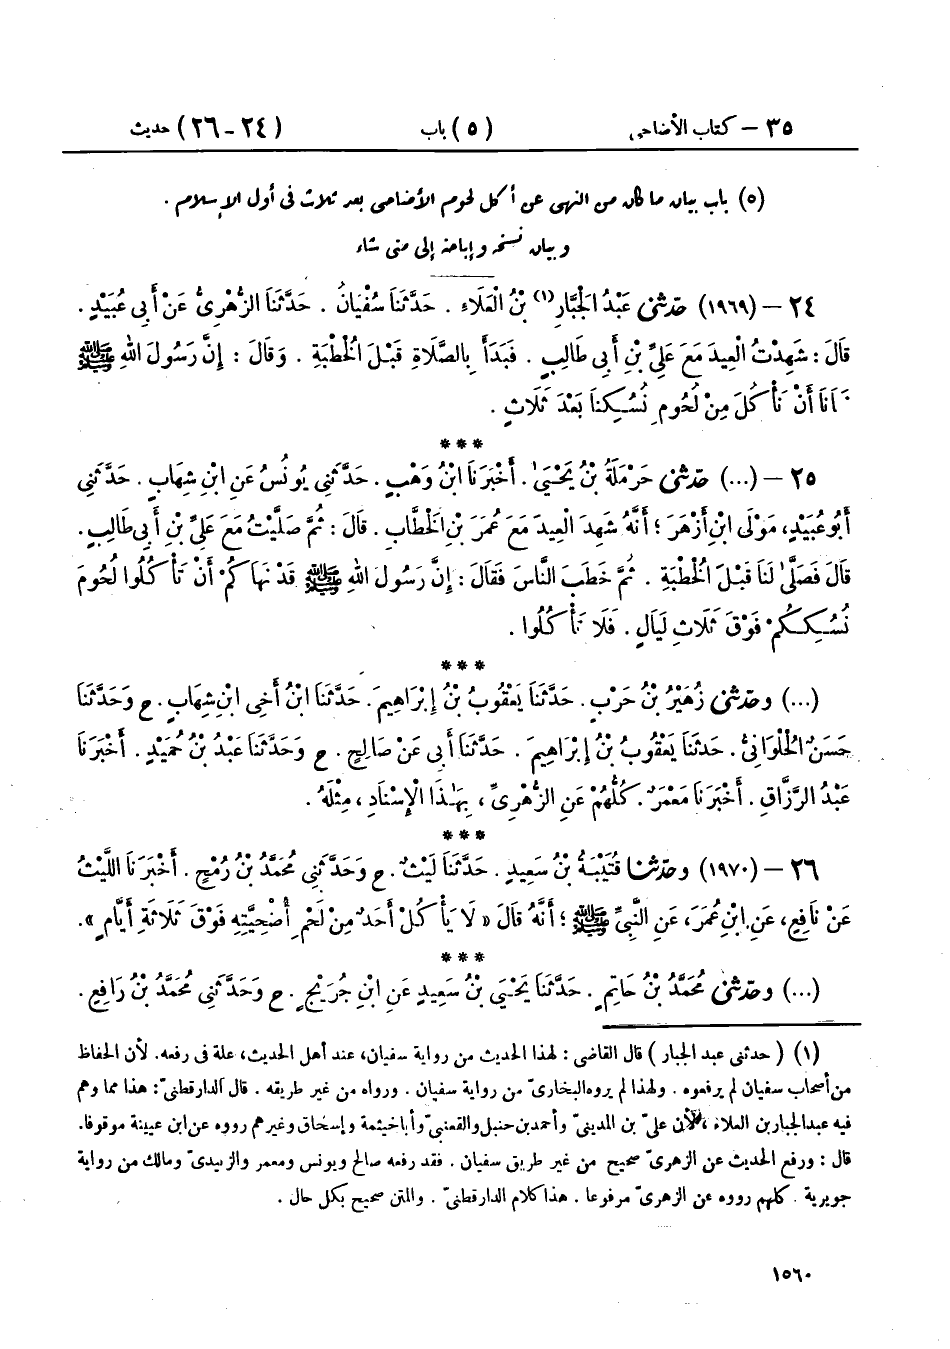 ٣٥ – كتاب الأضاحى (٥) باب (٢٤-٢٦) حديث
(٥) باب بيان ما كان من النهى عن أكل لحوم الأضاحى بعد ثلاث فى أول الإسلام .
وبيان نسخه وإباحته إلى متى شاء
٢٤ – (١٩٦٩) حدثنى عَبْدُ الْجَبَّارِ(١) بْنُ الْعَلَاءِ . حَدَّثَنَا سُفْيَانُ . حَدَّثَنَا الزُّهْرِىُّ عَنْ أَبِى عُبَيْدٍ .
قَالَ : شَهِدْتُ الْعِيدَ مَعَ عَلِىِّ بْنِ أَبِى طَالِبٍ . فَبَدَأَ بِالصَّلَاةِ قَبْلَ الْخُطْبَةِ . وَقَالَ : إِنَّ رَسُولَ اللهِ ﷺ
نَهَانَا أَنْ نَأْكُلَ مِنْ لُحُومِ نُسُكِنَا بَعْدَ ثَلَاثٍ .
***
٢٥ – (...) حدثنى حَرْمَلَةُ بْنُ يَحْيَىٰ . أَخْبَرَنَا ابْنُ وَهْبٍ . حَدَّثَنِى يُونُسُ عَنِ ابْنِ شِهَابٍ . حَدَّثَنِى
أَبُو عُبَيْدٍ، مَوْلَى ابْنِ أَزْهَرَ ؛ أَنَّهُ شَهِدَ الْعِيدَ مَعَ عُمَرَ بْنِ الْخَطَّابِ . قَالَ : ثُمَّ صَلَّيْتُ مَعَ عَلِىِّ بْنِ أَبِى طَالِبٍ .
قَالَ فَصَلَّىٰ لَنَا قَبْلَ الْخُطْبَةِ . ثُمَّ خَطَبَ النَّاسَ فَقَالَ : إِنَّ رَسُولَ اللهِ ﷺ قَدْ نَهَاكُمْ أَنْ تَأْكُلُوا لُحُومَ
نُسُكِكُمْ فَوْقَ ثَلَاثِ لَيَالٍ . فَلَا تَأْكُلُوا .
***
(...) وحدثنى زُهَيْرُ بْنُ حَرْبٍ . حَدَّثَنَا يَعْقُوبُ بْنُ إِبْرَاهِيمَ . حَدَّثَنَا ابْنُ أَخِى ابْنِ شِهَابٍ . ح وَحَدَّثَنَا
حَسَنٌ الْحُلْوَانِىُّ . حَدَّثَنَا يَعْقُوبُ بْنُ إِبْرَاهِيمَ . حَدَّثَنَا أَبِى عَنْ صَالِحٍ . ح وَحَدَّثَنَا عَبْدُ بْنُ حُمَيْدٍ . أَخْبَرَنَا
عَبْدُ الرَّزَّاقِ . أَخْبَرَنَا مَعْمَرٌ . كُلُّهُمْ عَنِ الزُّهْرِىِّ ، بِهَٰذَا الْإِسْنَادِ ، مِثْلَهُ .
***
٢٦ – (١٩٧٠) وحدثنا قُتَيْبَةُ بْنُ سَعِيدٍ . حَدَّثَنَا لَيْثٌ . ح وَحَدَّثَنِى مُحَمَّدُ بْنُ رُمْحٍ . أَخْبَرَنَا اللَّيْثُ
عَنْ نَافِعٍ ، عَنِ ابْنِ عُمَرَ ، عَنِ النَّبِىِّ ﷺ ؛ أَنَّهُ قَالَ « لَا يَأْكُلْ أَحَدٌ مِنْ لَحْمِ أُضْحِيَّتِهِ فَوْقَ ثَلَاثَةِ أَيَّامٍ » .
***
(...) وحدثنى مُحَمَّدُ بْنُ حَاتِمٍ . حَدَّثَنَا يَحْيَى بْنُ سَعِيدٍ عَنِ ابْنِ جُرَيْجٍ . ح وَحَدَّثَنِى مُحَمَّدُ بْنُ رَافِعٍ .
(١) ( حدثنى عبد الجبار ) قال القاضى : لهذا الحديث من رواية سفيان، عند أهل الحديث، علة فى رفعه. لأن الحفاظ
من أصحاب سفيان لم يرفعوه . ولهذا لم يروه البخارىّ من رواية سفيان . ورواه من غير طريقه . قال الدارقطنىّ : هذا مما وهم
فيه عبد الجبار بن العلاء ، لأن علىّ بن المدينىّ وأحمد بن حنبل والقعنبىّ وأبا خيثمة وإسحاق وغيرهم رووه عن ابن عيينة موقوفا.
قال : ورفع الحديث عن الزهرىّ صحيح من غير طريق سفيان . فقد رفعه صالح ويونس ومعمر والزبيدىّ ومالك من رواية
جويرية . كلهم رووه عن الزهرىّ مرفوعا . هذا كلام الدارقطنىّ . والمتن صحيح بكل حال .
١٥٦٠